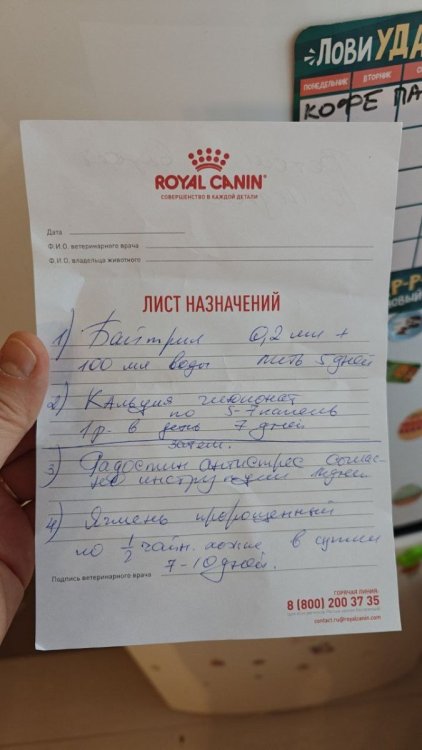 ЛОВИ УДА
ПОНЕДЕЛЬНИК ВТОРНИК
КОФЕ ПА
ROYAL CANIN
СОВЕРШЕНСТВО В КАЖДОЙ ДЕТАЛИ
Дата
Ф.И.О. ветеринарного врача
Ф.И.О. владельца животного
ЛИСТ НАЗНАЧЕНИЙ
1) Байтрил 0,2 мл +
100 мл воды пить 5 дней
2) Кальция глюконат
по 5-7 капель
1 р. в день 7 дней
затем.
3) Радостин антистрес соглас-
но инструкции
4) Ячмень пророщенный
по 1/2 чайн. ложке в сутки
7-10 дней.
Подпись ветеринарного врача
ГОРЯЧАЯ ЛИНИЯ:
8 (800) 200 37 35
contact.ru@royalcanin.com